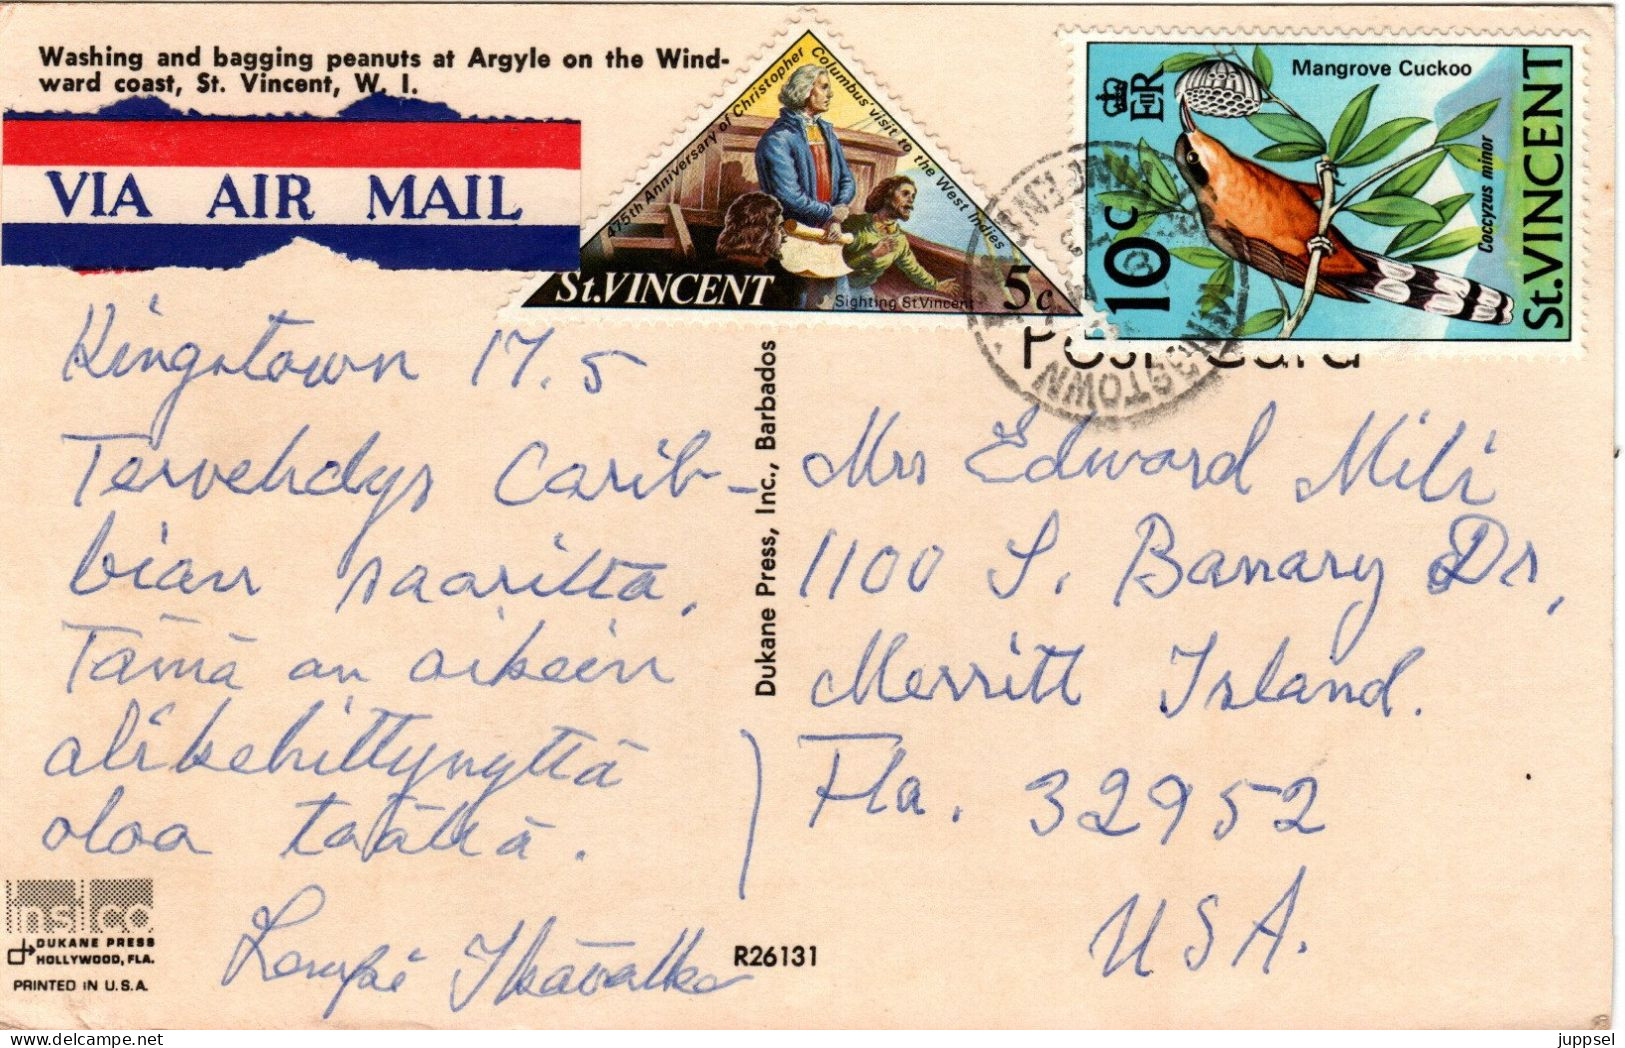 Washing and bagging peanuts at Argyle on the Wind-
ward coast, St. Vincent, W. I.
VIA AIR MAIL
475th Anniversary of Christopher Columbus' visit to the West Indies
Sighting St Vincent
St. VINCENT 5c
Mangrove Cuckoo
EIIR
10c
Coccyzus minor
St. VINCENT
KINGSTOWN
Post Card
Kingstown 17.5
Tervehdys Carib-
bian saarilta,
Tämä on oikein
alikehittynyttä
oloa täällä.
Dukane Press, Inc., Barbados
Mrs Edward Mili
1100 S. Banary Dr,
Merritt Island.
Fla. 32952
USA.
insico
DUKANE PRESS
HOLLYWOOD, FLA.
PRINTED IN U.S.A.
R26131
juppsel